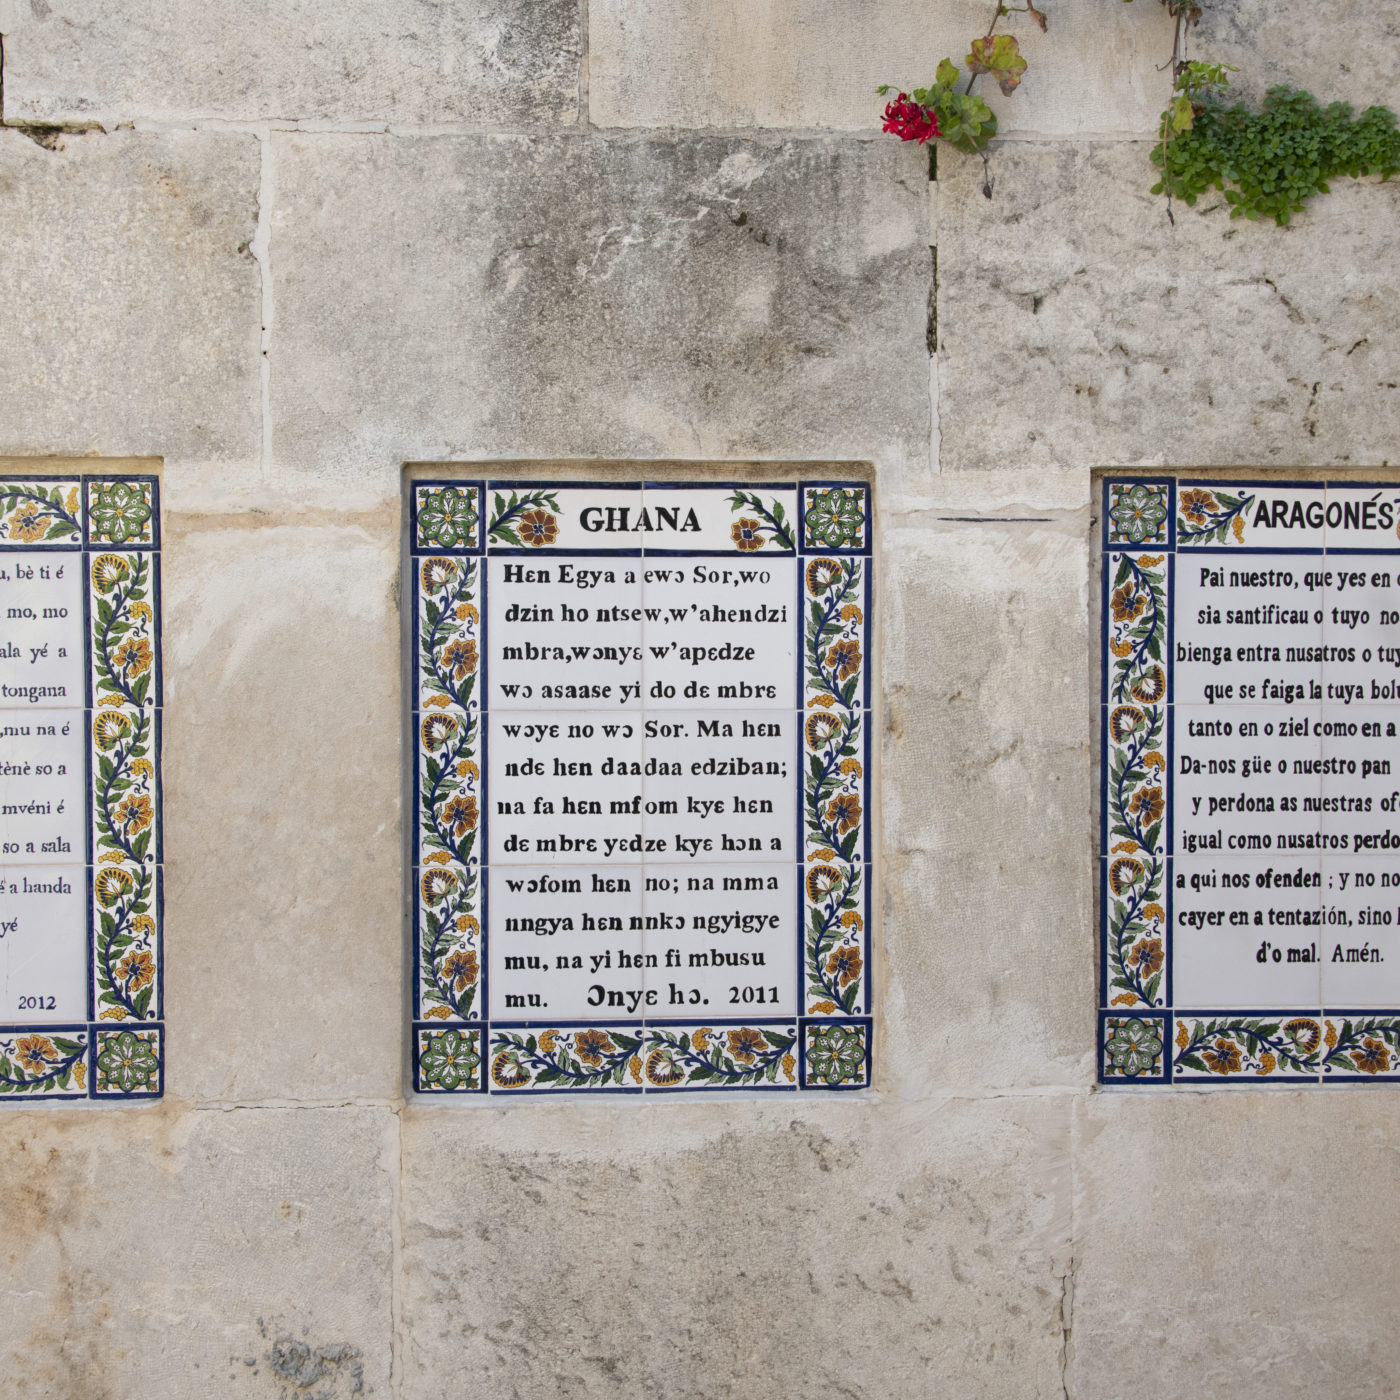 bè ti é
mo, mo
yé a
tongana
mu na é
so a
mvéni é
so a sala
a handa
yé
2012
GHANA
Hɛn Egya a ewɔ Sor,wo
dzin ho ntsew,w'ahendzi
mbra,wɔnyɛ w'apɛdze
wɔ asaase yi do dɛ mbrɛ
wɔyɛ no wɔ Sor. Ma hɛn
ndɛ hɛn daadaa edziban;
na fa hɛn mfom kyɛ hɛn
dɛ mbrɛ yɛdze kyɛ hɔn a
wɔfom hɛn no; na mma
nngya hɛn nnkɔ ngyigye
mu, na yi hɛn fi mbusu
mu. Ɔnyɛ hɔ. 2011
ARAGONÉS
Pai nuestro, que yes en
sia santificau o tuyo
bienga entra nusatros o
que se faiga la tuya
tanto en o ziel como en a
Da-nos güe o nuestro pan
y perdona as nuestras
igual como nusatros
a qui nos ofenden ; y no
cayer en a tentazión, sino
d'o mal. Amén.